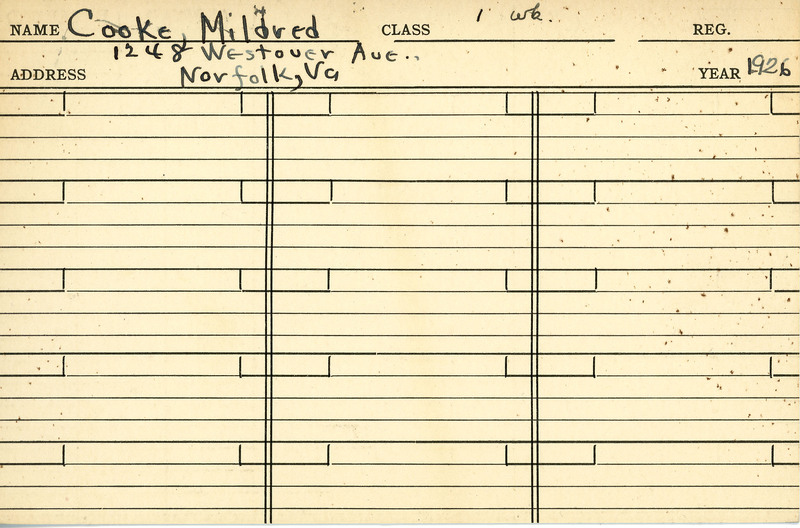 NAME Cooke, Mildred CLASS 1 wk. REG.
1248 Westover Ave..
ADDRESS Norfolk, Va YEAR 1926